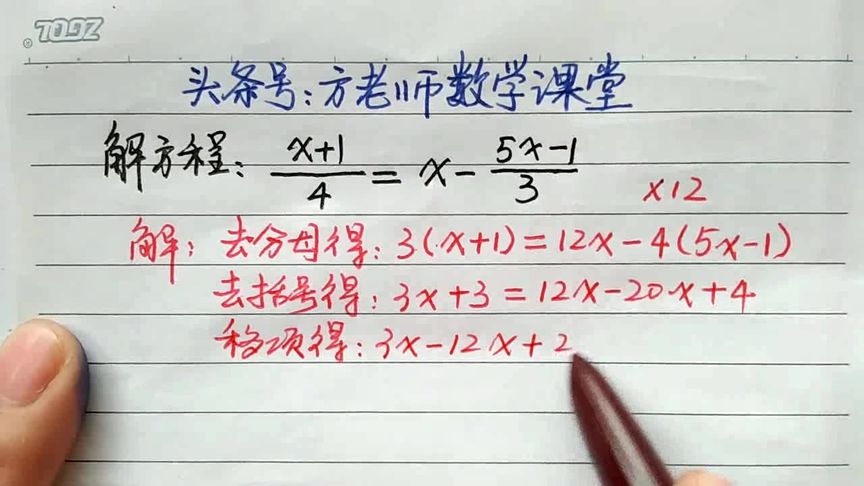 头条号:方老师数学课堂
解方程: (x+1)/4 = x - (5x-1)/3
×12
解: 去分母得: 3(x+1)=12x-4(5x-1)
去括号得: 3x+3=12x-20x+4
移项得: 3x-12x+2